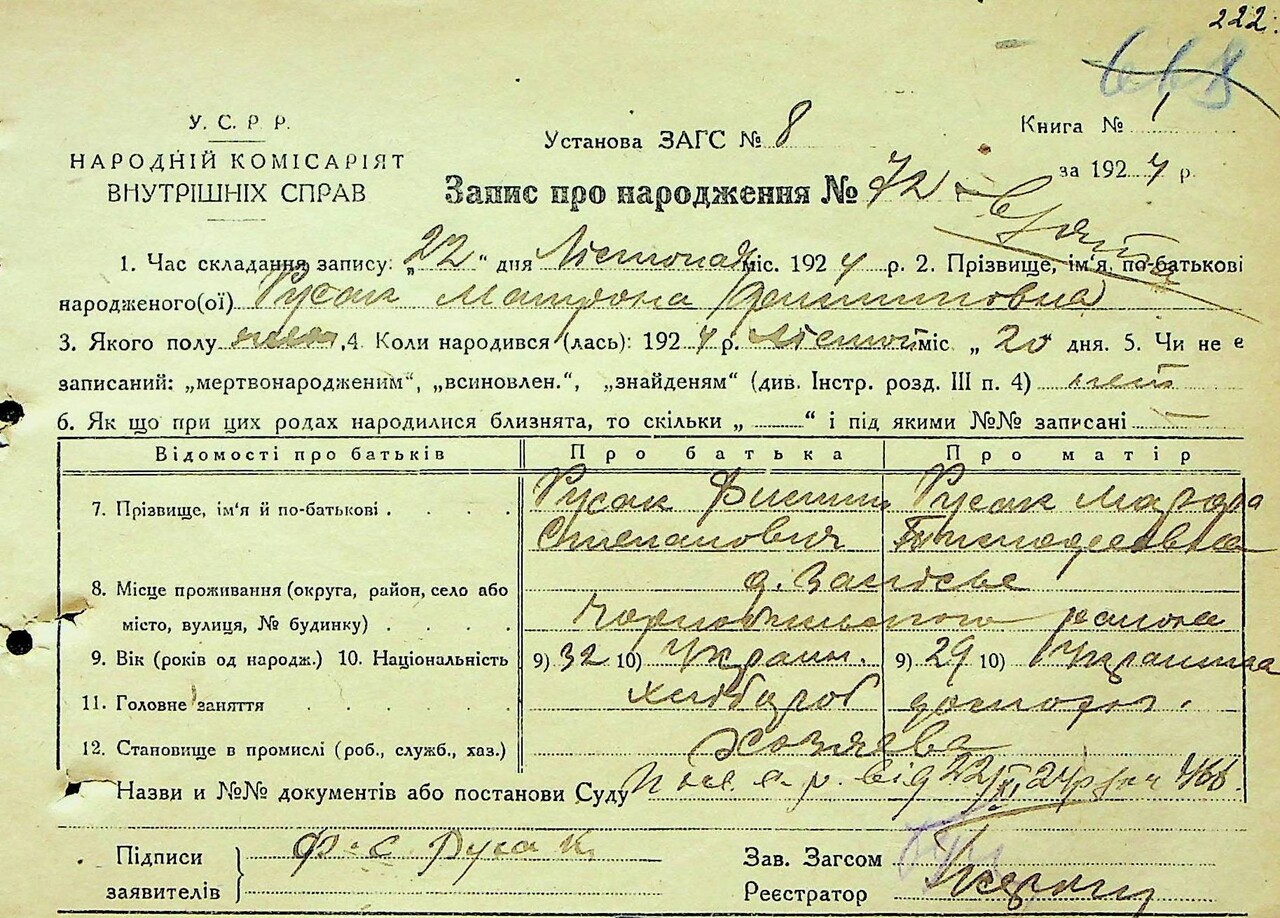 222.
668
У. С. Р. Р.
НАРОДНІЙ КОМІСАРІЯТ
ВНУТРІШНІХ СПРАВ
Установа ЗАГС № 8
Книга № 1
за 1924 р.
Запис про народження № 72
1. Час складання запису: „22“ дня Лістопаду міс. 1924 р. 2. Прізвище, ім'я, по-батькові
народженого(ої) Русак Матрона Филиповна
3. Якого полу жен, 4. Коли народився (лась): 1924 р. Лістоп міс „ 20 дня. 5. Чи не є
записаний: „мертвонародженим“, „всиновлен.“, „знайденям“ (див. Інстр. розд. III п. 4) нет
6. Як що при цих родах народилися близнята, то скільки „ “ і під якими №№ записані
Відомості про батьків Про батька Про матір
7. Прізвище, ім'я й по-батькові Русак Филип Степанович Русак
8. Місце проживання (округа, район, село або д. Залісье
місто, вулиця, № будинку) Чорнобильского района
9. Вік (років од народж.) 10. Національність 9) 32 10) Украин. 9) 29 10) Украинка
11. Головне заняття хлібороб господ.
12. Становище в промислі (роб., служб., хаз.) Хозяева
Назви и №№ документів або постанови Суду від 22/XI 24 р
Підписи
заявителів
Ф. С. Русак
Зав. Загсом
Реєстратор